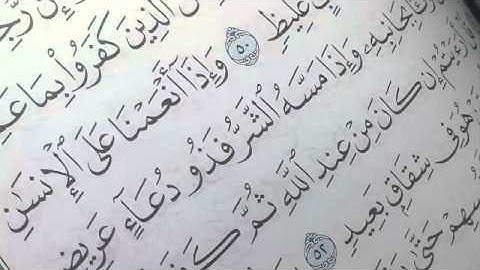 ٱلَّذِينَ كَفَرُوا۟ بِمَا
غَلِيظٍ ٥٠ وَإِذَآ أَنْعَمْنَا عَلَى ٱلْإِنسَٰنِ
بِجَانِبِهِۦ وَإِذَا مَسَّهُ ٱلشَّرُّ فَذُو دُعَآءٍ عَرِيضٍ
إِن كَانَ مِنْ عِندِ ٱللَّهِ ثُمَّ
هُوَ فِى شِقَاقٍۭ بَعِيدٍ ٥٢
حَتَّىٰ